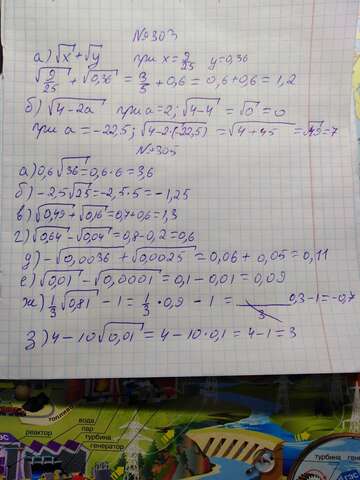 №303
а) √x + √y при x = 9/25 y = 0,36
√9/25 + √0,36 = 3/5 + 0,6 = 0,6 + 0,6 = 1,2
б) √4-2a при a=2; √4-4 = √0 = 0
при a = -22,5; √4-2·(-22,5) = √4+45 = √49 = 7
№305
а) 0,6√36 = 0,6·6 = 3,6
б) -2,5√25 = -2,5·5 = -1,25
в) √0,49 + √0,16 = 0,7+0,6 = 1,3
г) √0,64 - √0,04 = 0,8-0,2 = 0,6
д) -√0,0036 + √0,0025 = 0,06 + 0,05 = 0,11
е) √0,01 - √0,0001 = 0,1 - 0,01 = 0,09
ж) 1/3 √0,81 - 1 = 1/3 · 0,9 - 1 = 0,3-1 = -0,7
з) 4 - 10√0,01 = 4 - 10·0,1 = 4-1 = 3
топливо
вода
пар
турбина
реактор
генератор
турбина